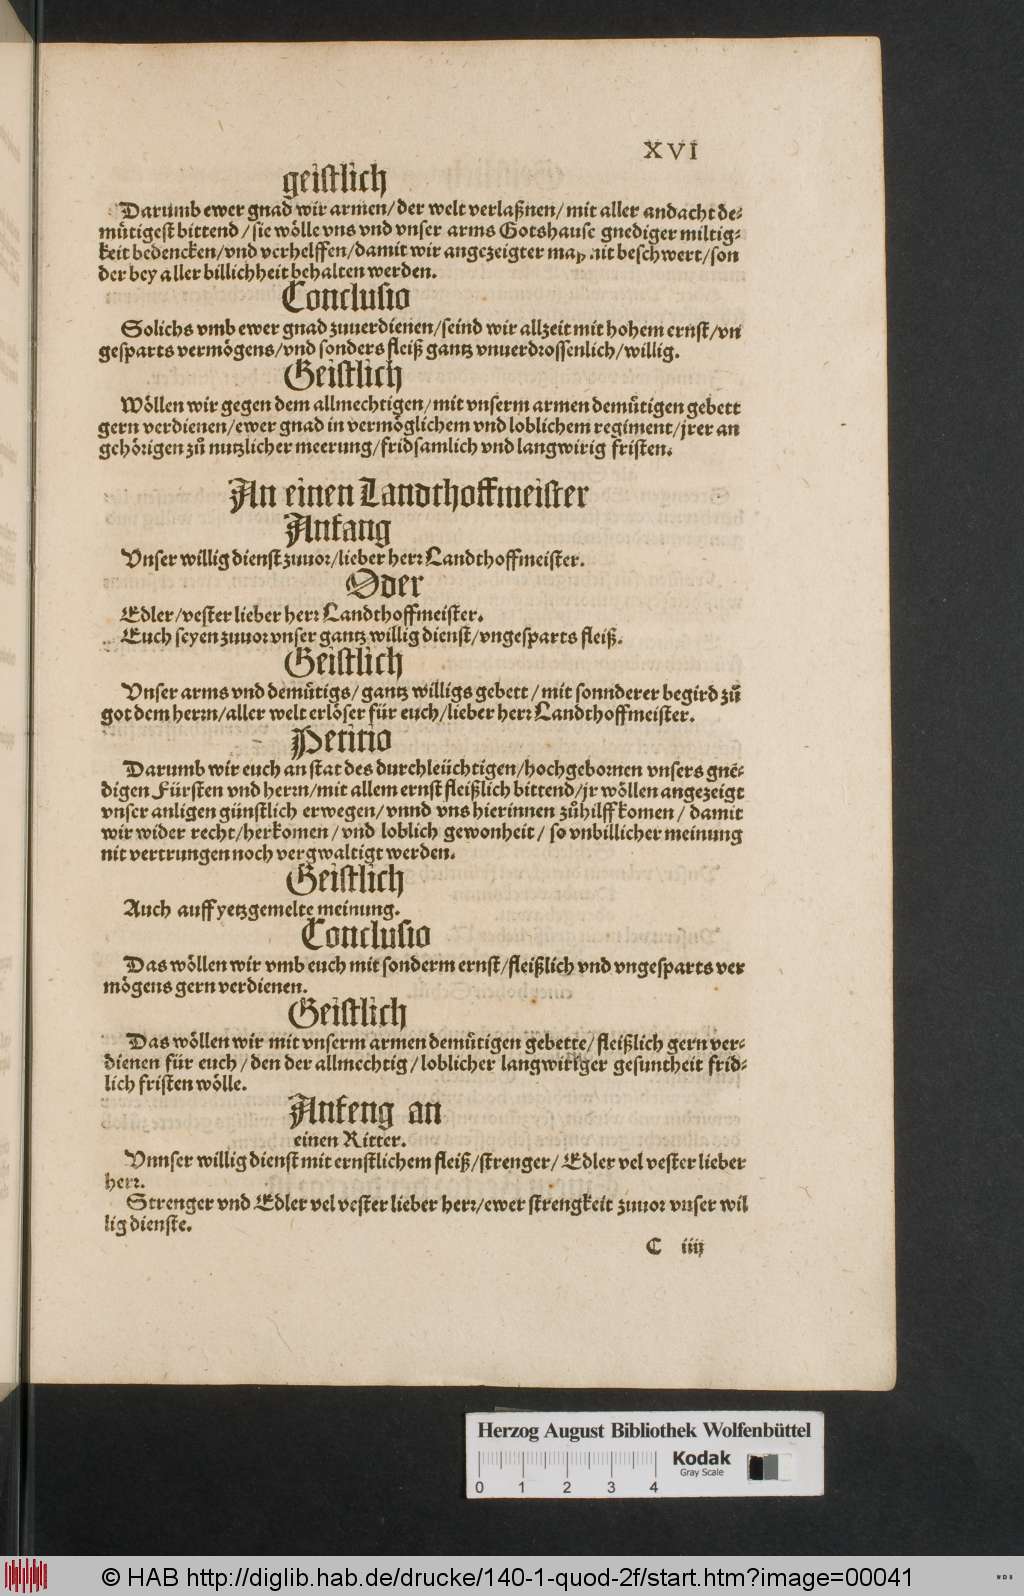 XVI
geistlich
Darumb ewer gnad wir armen/der welt verlaßnen/mit aller andacht de⸗
mütigest bittend/sie wölle vns vnd vnser arms Gotshause gnediger miltig⸗
keit bedencken/vnd verhelffen/damit wir angezeigter beschwert/son
der bey aller billichheit behalten werden.
Conclusio
Solichs vmb ewer gnad zuuerdienen/seind wir allzeit mit hohem ernst/vn
gesparts vermögens/vnd sonders fleiß gantz vnuerdrossenlich/willig.
Geistlich
Wöllen wir gegen dem allmechtigen/mit vnserm armen demütigen gebett
gern verdienen/ewer gnad in vermöglichem vnd loblichem regiment/jrer an
gehörigen zů nutzlicher meerung/fridsamlich vnd langwirig fristen.
An einen Landthoffmeister
Anfang
Vnser willig dienst zuuor/lieber herr Landthoffmeister.
Oder
Edler/vester lieber herr Landthoffmeister.
Euch seyen zuuor vnser gantz willig dienst/vngesparts fleiß.
Geistlich
Vnser arms vnd demütigs/gantz willigs gebett/mit sonnderer begird zů
got dem herrn/aller welt erlöser für euch/lieber herr Landthoffmeister.
Petitio
Darumb wir euch an stat des durchleüchtigen/hochgebornen vnsers gnē⸗
digen Fürsten vnd herrn/mit allem ernst fleißlich bittend/jr wöllen angezeigt
vnser anligen günstlich erwegen/vnnd vns hierinnen zůhilff komen/damit
wir wider recht/herkomen/vnd loblich gewonheit/so vnbillicher meinung
nit vertrungen noch vergwaltigt werden.
Geistlich
Auch auff yetzgemelte meinung.
Conclusio
Das wöllen wir vmb euch mit sonderm ernst/fleißlich vnd vngesparts ver
mögens gern verdienen.
Geistlich
Das wöllen wir mit vnserm armen demütigen gebette/fleißlich gern ver⸗
dienen für euch/den der allmechtig/loblicher langwiriger gesuntheit frid⸗
lich fristen wölle.
Anfeng an
einen Ritter.
Vnnser willig dienst mit ernstlichem fleiß/strenger/Edler vel vester lieber
herr.
Strenger vnd Edler vel vester lieber herr/ewer strengkeit zuuor vnser wil
lig dienste.
C iiij
Herzog August Bibliothek Wolfenbüttel
Kodak
Gray Scale
0 1 2 3 4
© HAB http://diglib.hab.de/drucke/140-1-quod-2f/start.htm?image=00041